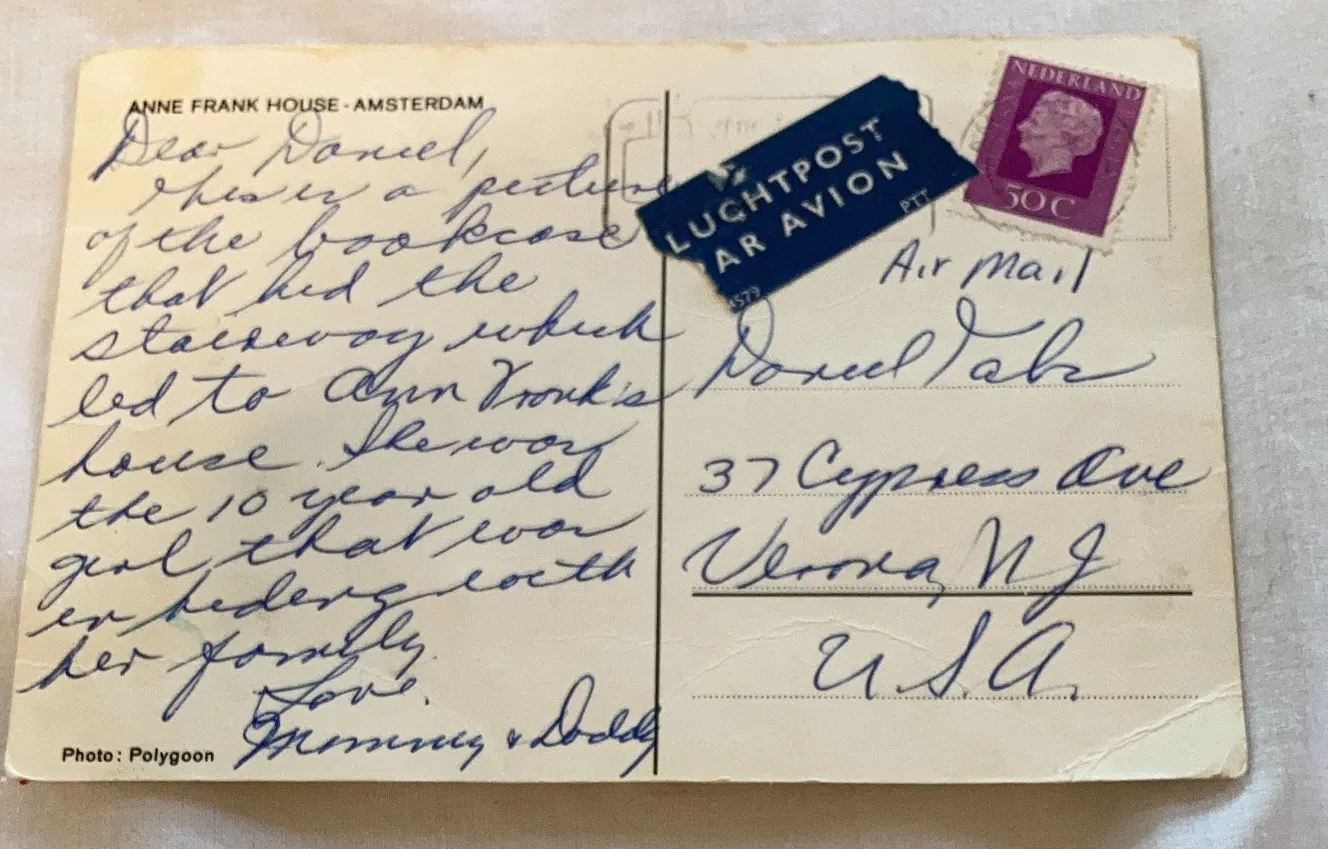 ANNE FRANK HOUSE - AMSTERDAM
Dear Daniel,
this is a picture
of the bookcase
that hid the
stairway which
led to Ann Frank's
house. She was
the 10 year old
girl that was
in hiding with
her family.
Love,
Mommy & Daddy
Photo: Polygoon
LUCHTPOST
PAR AVION
PTT
NEDERLAND
50 C
Air Mail
Daniel
37 Cypress Ave
Verona, N J
U.S.A.